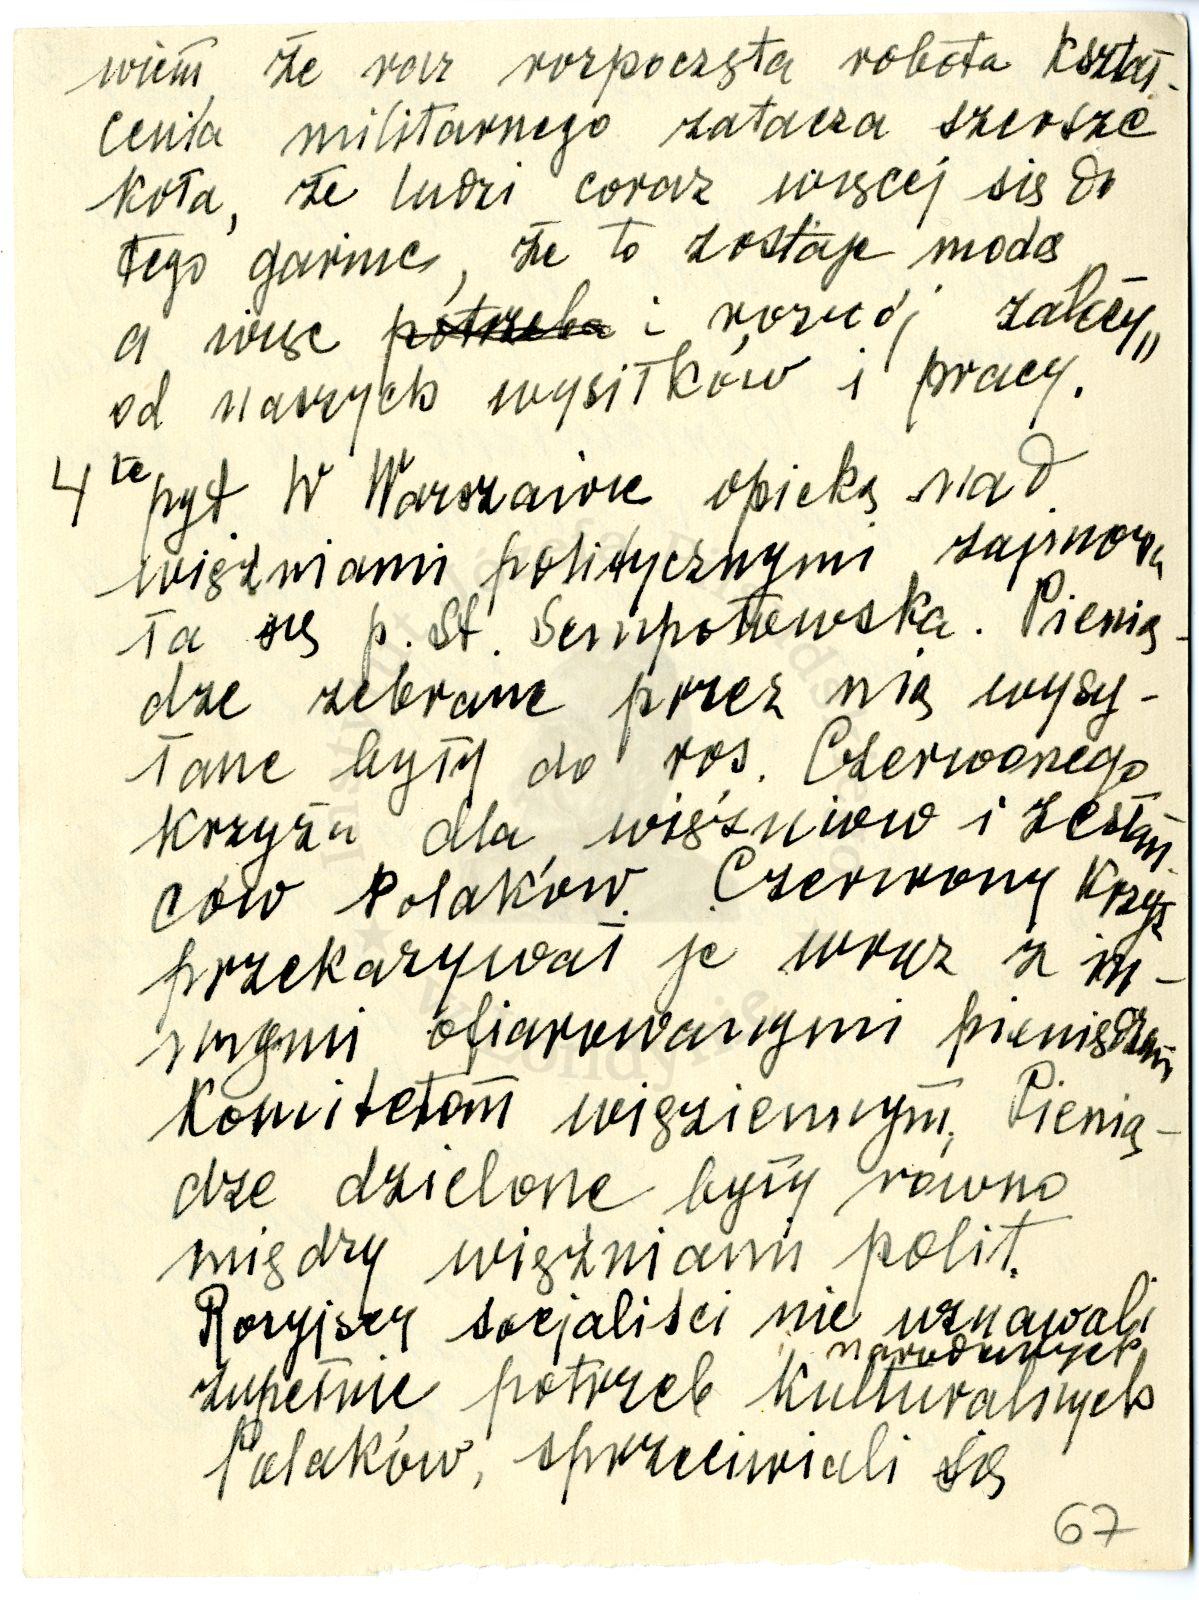 wiem, że raz rozpoczęta robota kształ-
cenia militarnego zatacza szersze
koła, że ludzi coraz więcej się do
tego garnie, że to zostaje modą
a więc potrzeba i rozwój zależy„
od naszych wysiłków i pracy.
4te pyt W Warszawie opieką nad
więźniami politycznymi zajmowa
ła się p. St. Sempołowska. Pienią-
dze zebrane przez nią wysy-
łane były do ros. Czerwonego
Krzyża dla więźniow i zesłań
ców Polaków. Czerwony Krzyż
przekazywał je wraz z in-
nymi ofiarowanymi pieniędzmi
Komitetom więziennym. Pienią-
dze dzielone były równo
między więźniami polit.
Rosyjscy socjaliści nie uznawali
narodowych
zupełnie potrzeb kulturalnych
Polaków, sprzeciwiali się
67